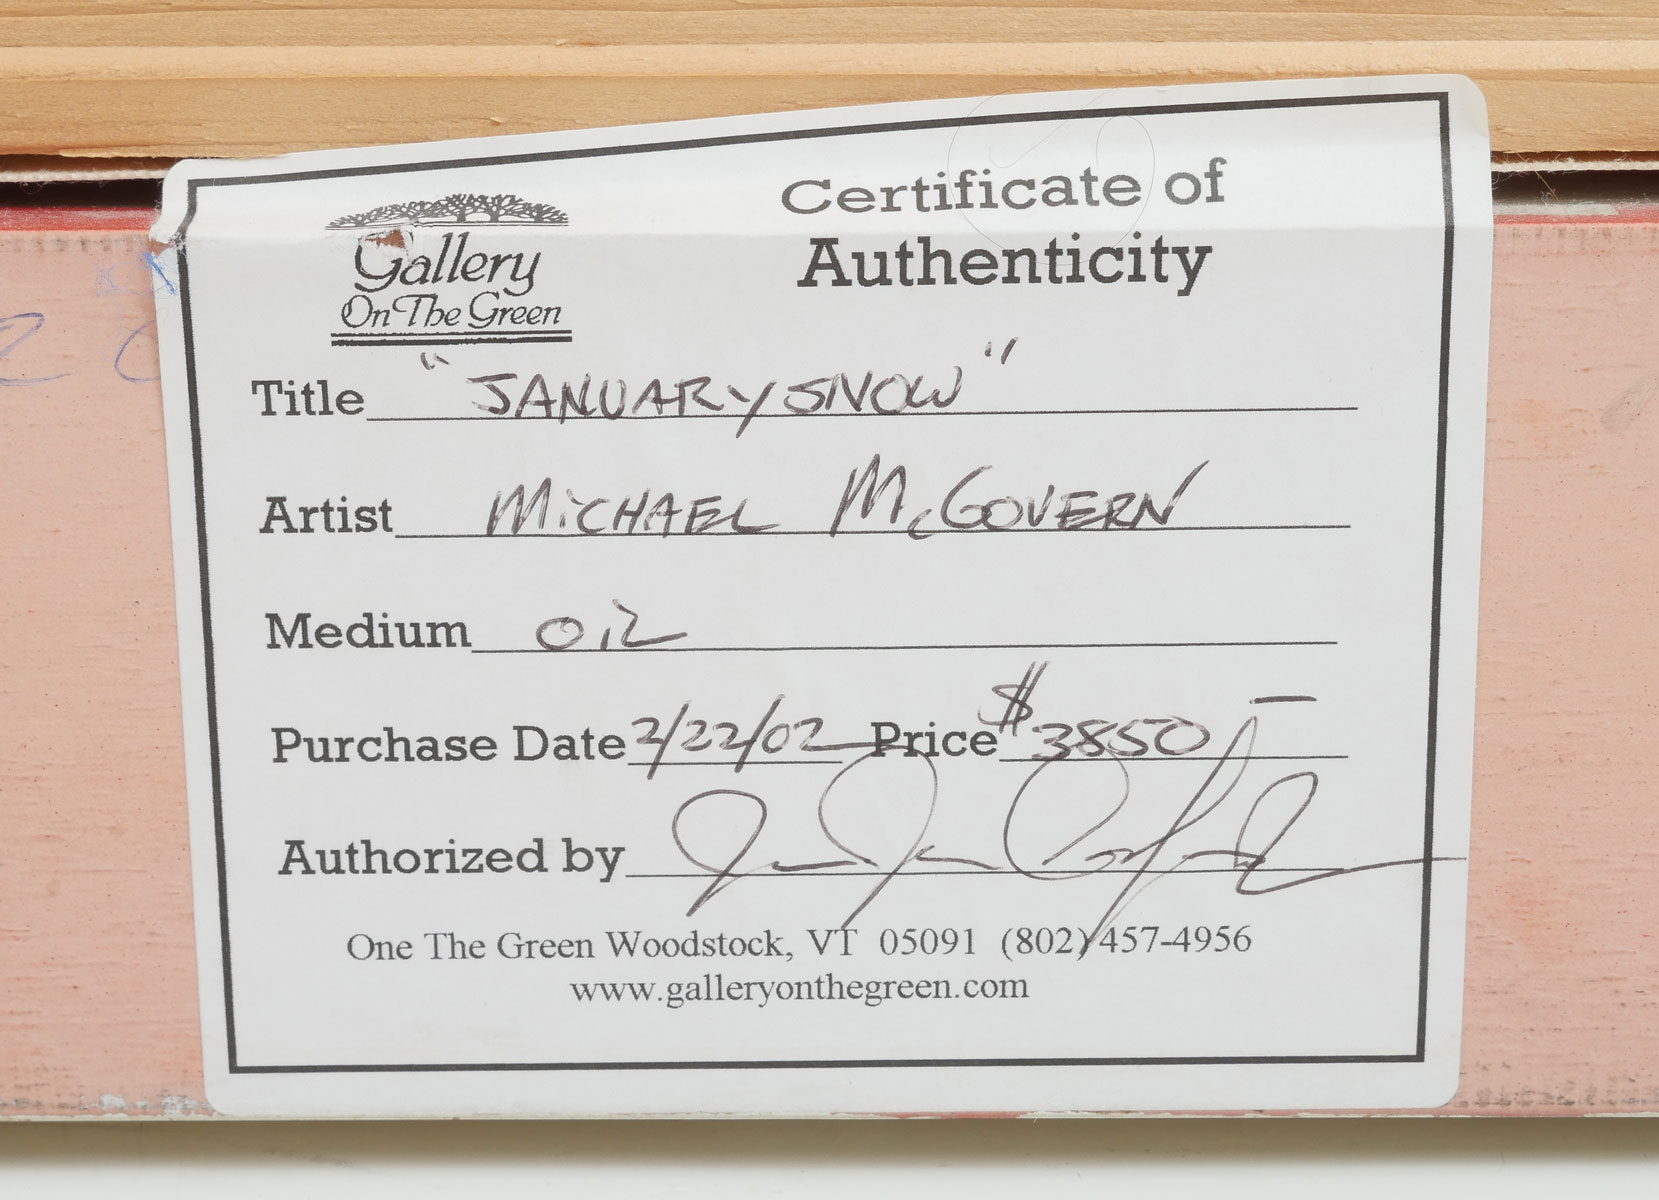 Certificate of
Authenticity
Gallery
On The Green
Title "JANUARY SNOW"
Artist MiCHAEL McGOVERN
Medium OiL
Purchase Date 2/22/02 Price $3850 —
Authorized by
One The Green Woodstock, VT 05091 (802) 457-4956
www.galleryonthegreen.com